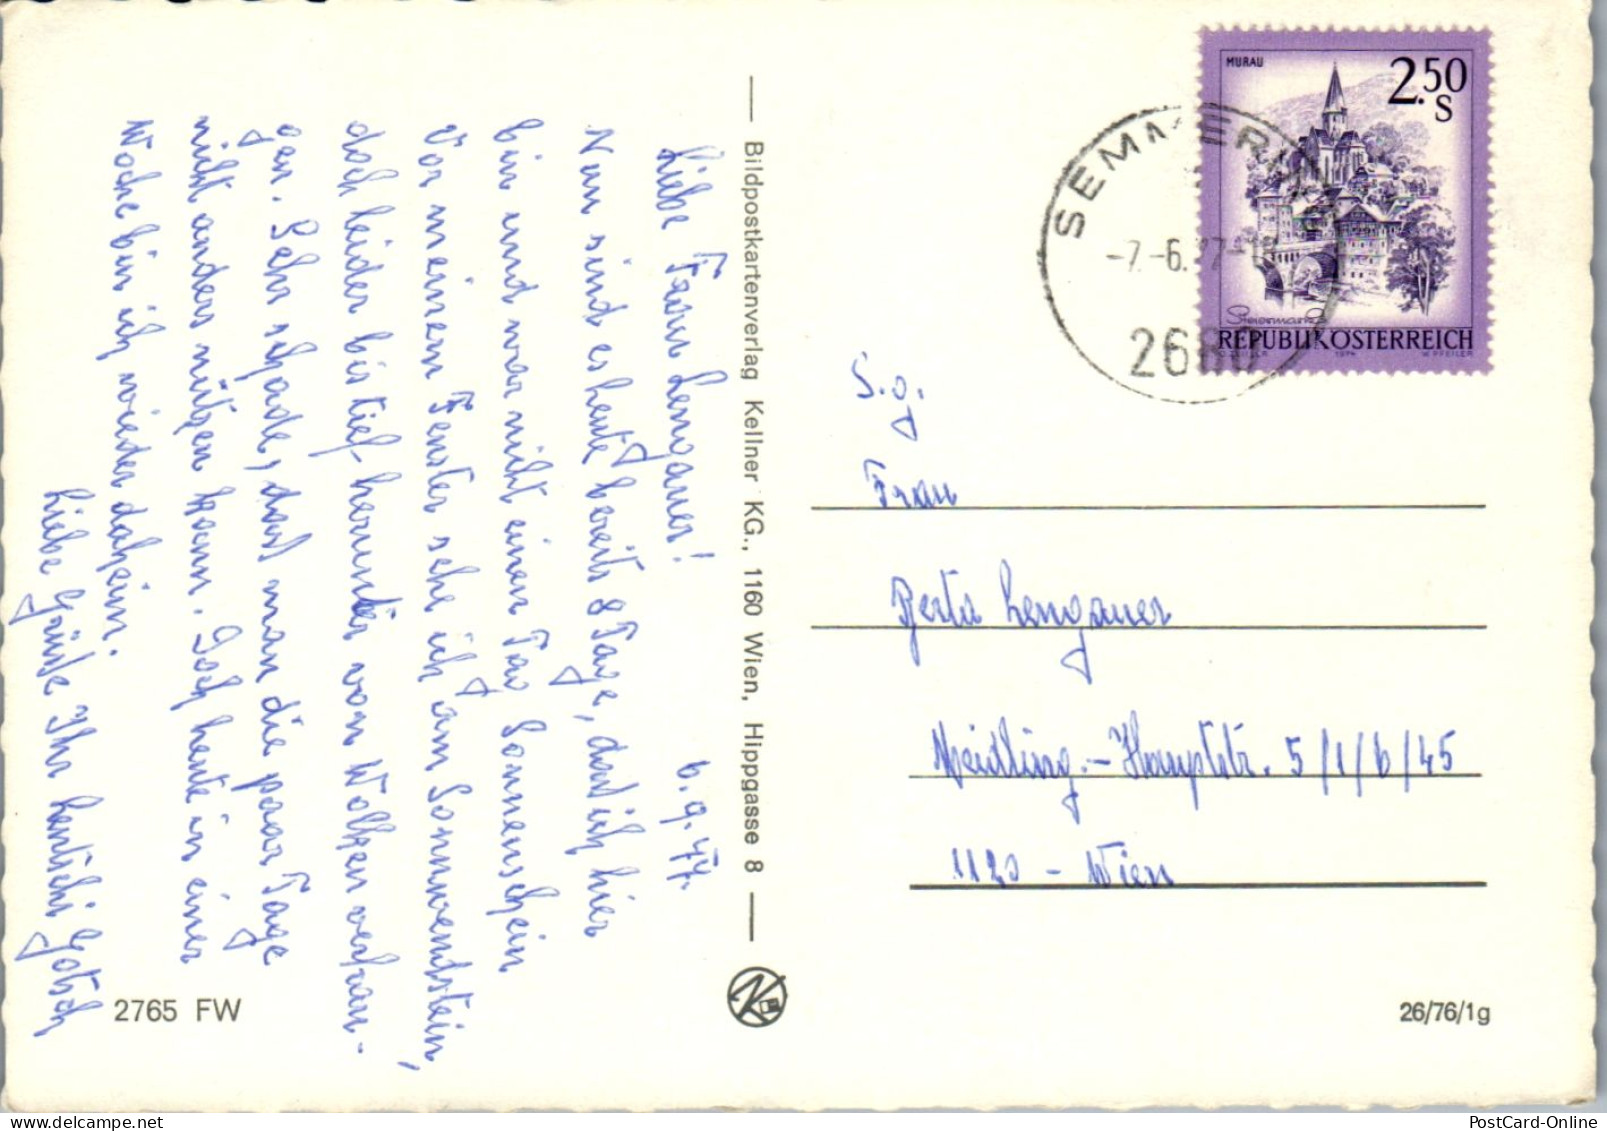 Liebe Frau Lengauer! 6.9.77.
Nun sind es heute bereits 8 Tage, dass ich hier
bin und war nicht einen Tag Sonnenschein
Vor meinem Fenster sehe ich am Sonnwendstein,
doch leider bis tief herunter von Wolken verhan-
gen. Sehr schade, dass man die paar Tage
nicht anders nützen kann. Doch heute in einer
Woche bin ich wieder daheim.
Liebe Grüße Ihr Gotsch
Bildpostkartenverlag Kellner KG., 1160 Wien, Hippgasse 8
2765 FW
MURAU
2.50
S
Steiermark
REPUBLIK ÖSTERREICH
1974
W. PFEILER
SEMMERING
-7.-6. 77-
2680
S.g.
Frau
Berta Lengauer
Meidling.-Hauptstr. 5/1/6/45
1120 - Wien
26/76/1g
PostCard-Online